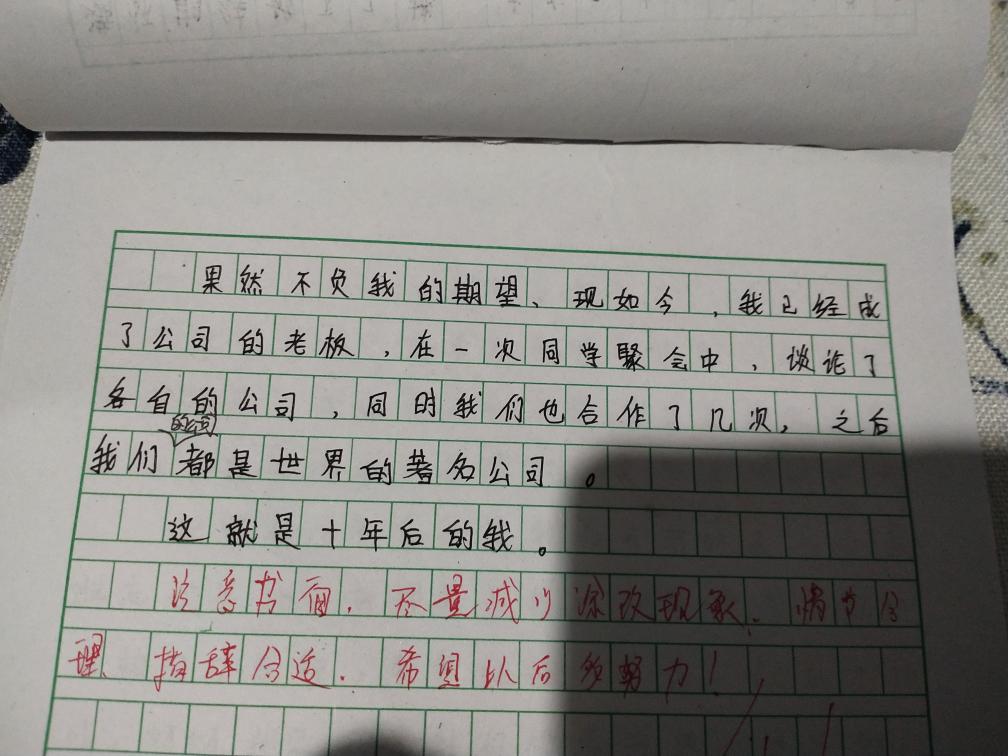 果然不负我的期望、现如今,我已经成
了公司的老板,在一次同学聚会中,谈论了
各自的公司,同时我们也合作了几次,之后
的公司
我们都是世界的著名公司。
这就是十年后的我。
注意书面.尽量减少涂改现象.情节合
理、措辞合适.希望以后多努力!